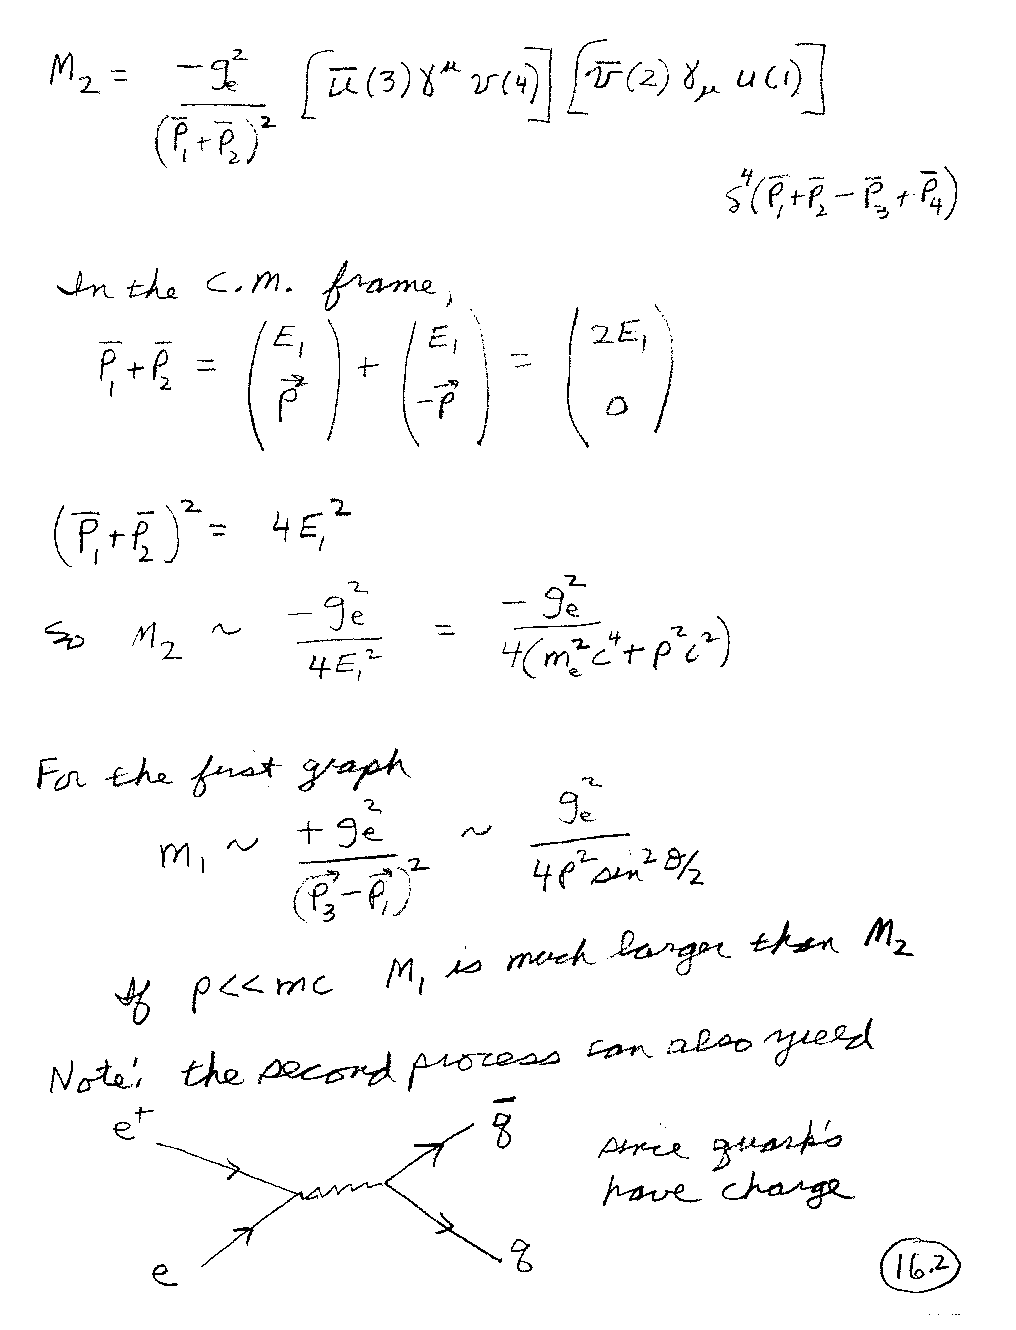 M₂ = -gₑ² / (P̄₁+P̄₂)² [ū(3)γ^μ v(4)] [v̄(2)γ_μ u(1)]
δ⁴(P̄₁+P̄₂-P̄₃+P̄₄)
In the C.M. frame,
P̄₁+P̄₂ = (E₁, p⃗) + (E₁, -p⃗) = (2E₁, 0)
(P̄₁+P̄₂)² = 4E₁²
So M₂ ~ -gₑ² / 4E₁² = -gₑ² / 4(mₑ²c⁴+p²c²)
For the first graph
M₁ ~ +gₑ² / (p⃗₃-p⃗₁)² ~ gₑ² / 4p² sin² θ/2
If p<<mc M₁ is much larger than M₂
Note: the second process can also yield
e⁺ q̄
since quark's
have charge
e q
16.2